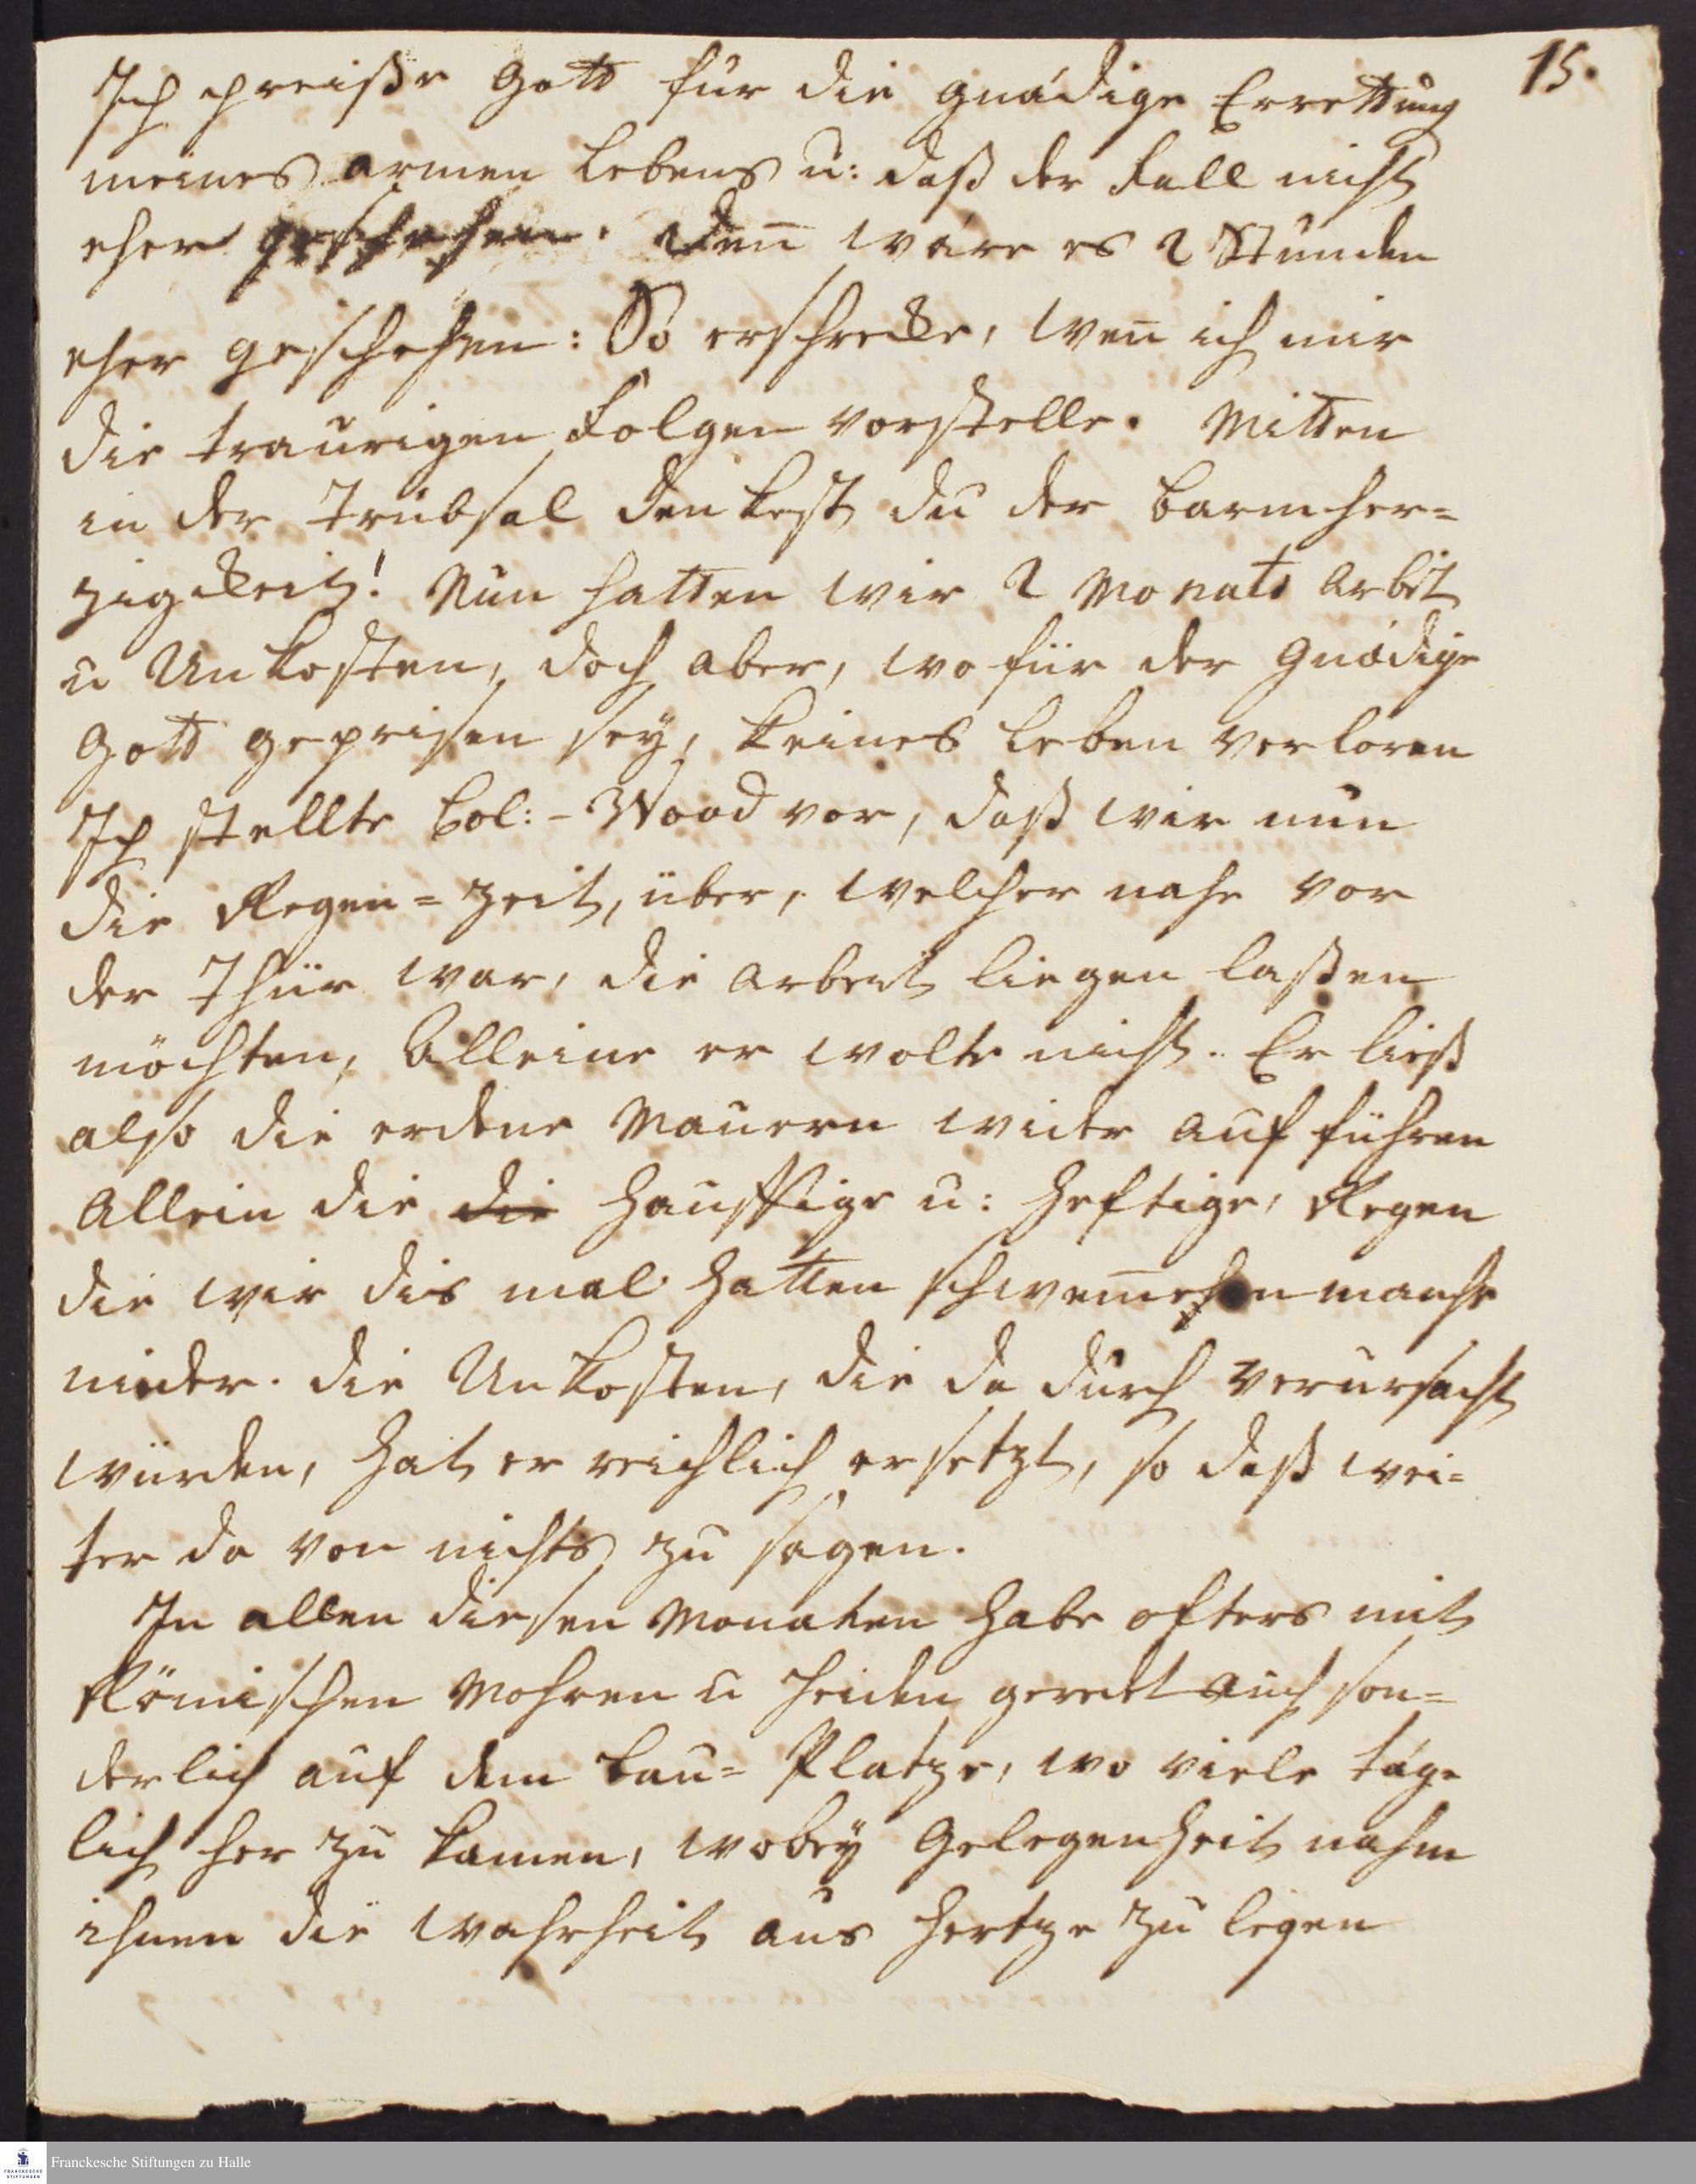 15.
Ich preiße Gott für die gnädige Errettung
meines armen Lebens u: daß der Fall nicht
eher geschehen. Den̄ wäre es 2 Stunden
eher geschehen: So erschrecke, wen̄ ich mir
die traurigen Folgen vorstelle. Mitten
in der Trübsal denkest du der Barmher=
zigkeit! Nun hatten wir 2 Monats Arbeit
u Unkosten, doch aber, wo für der Gnädige
Gott geprisen sey, keines Leben verloren
Ich stellte Col:- Wood vor, daß wir nun
die Regen=Zeit, über, welcher nahe vor
der Thür war, die Arbeit liegen laßen
möchten, Alleine er wolte nicht. Er ließ
also die erdene Mauern wider auf führen
Allein die die hauffige u: heftige, Regen
die wir dis mal hatten manche
nieder. die Unkosten, die da durch verursacht
würden, hat er reichlich ersetzt, so daß wei=
ter da von nichts zu sagen.
In allen diesen Monaten habe ofters mit
Römischen Mohren u Heiden geredet auch son=
derlich auf dem Bau= Platze, wo viele täg=
lich her zu kamen, wobey Gelegenheit nahm
ihnen die Wahrheit ans Hertze zu legen
Franckesche Stiftungen zu Halle
FRANCKESCHE
STIFTUNGEN